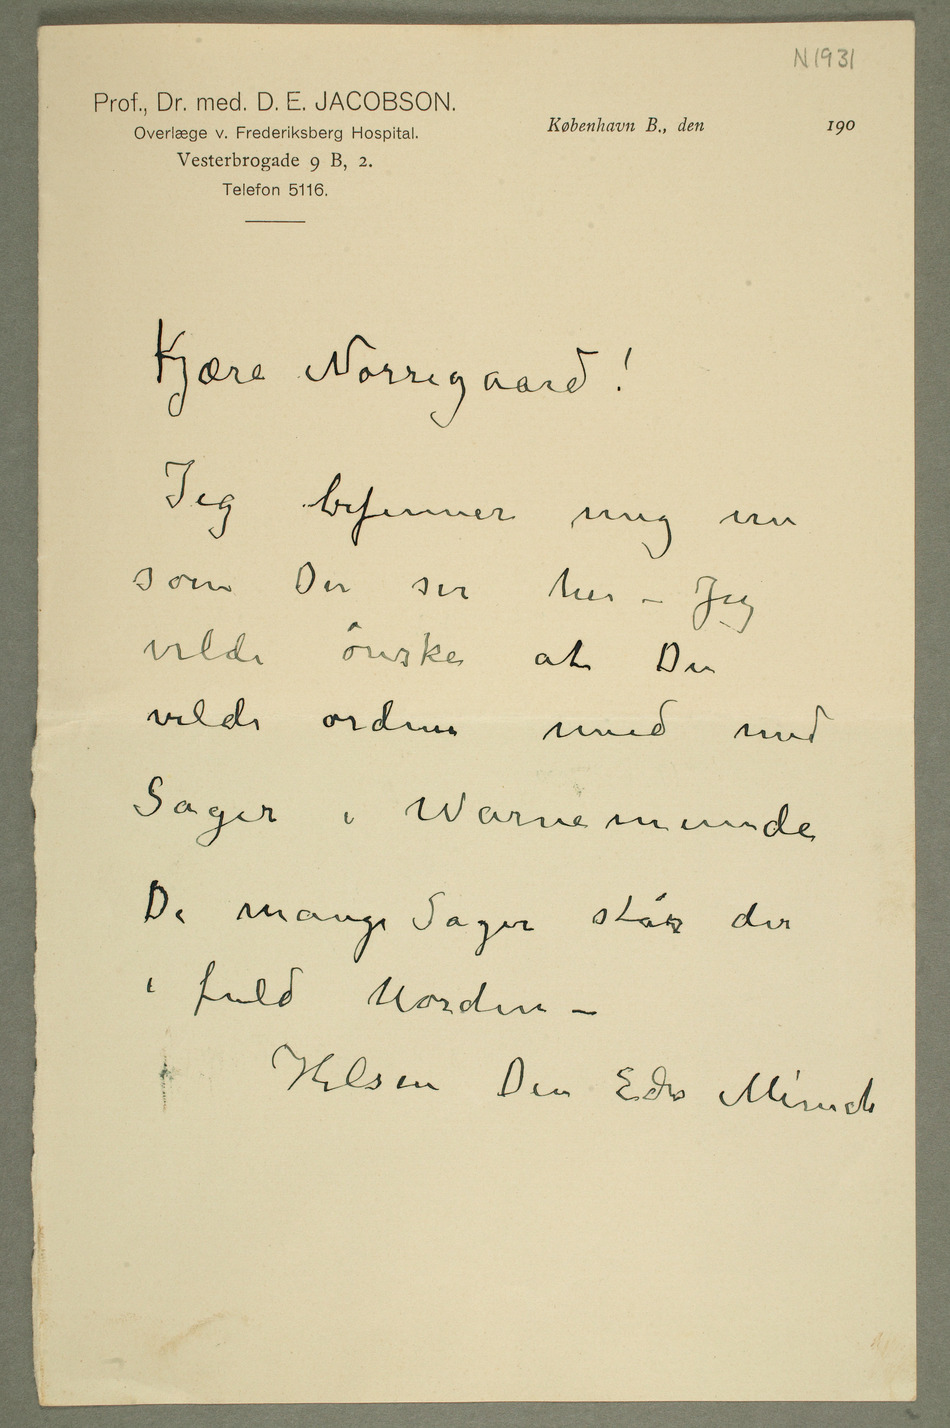 N1931
Prof., Dr. med. D. E. JACOBSON.
Overlæge v. Frederiksberg Hospital.
Vesterbrogade 9 B, 2.
Telefon 5116.
København B., den 190
Kjære Nørregaard!
Jeg befinner mig nu
som Du ser her – Jeg
vilde ønske at Du
vilde ordne med med
Sager i Warnemunde
De mange Sager står der
i fuld Uorden –
Hilsen Din Edv Munch